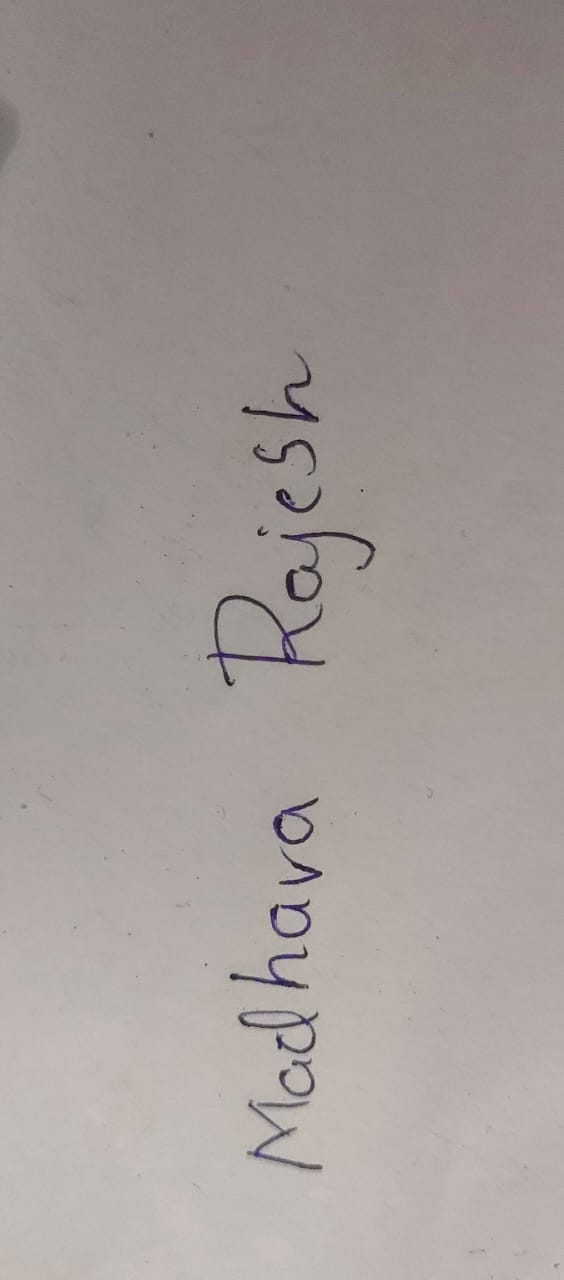 Madhava Rajesh